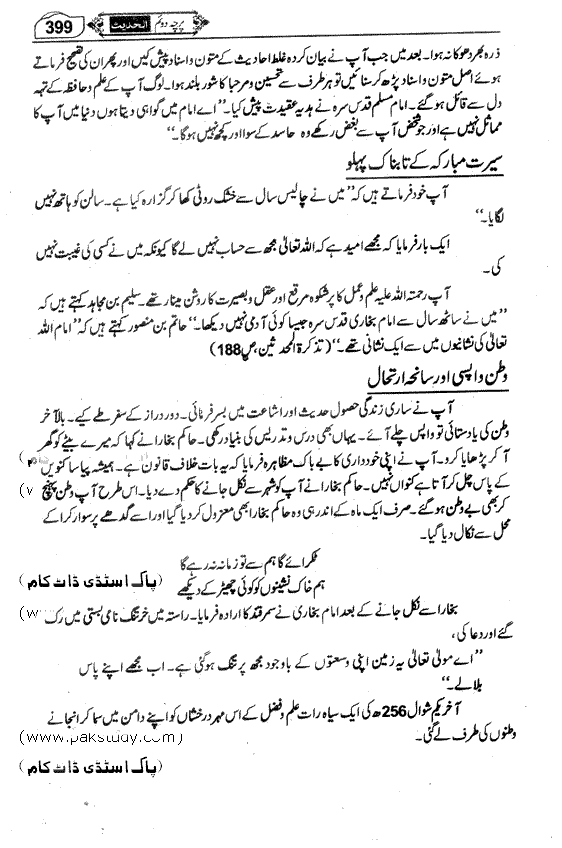 399 الحدیث پرچہ دوئم
ذرہ بھر دھوکا نہ ہوا۔ بعد میں جب آپ نے بیان کردہ غلط احادیث کے متون و اسناد پیش کیں اور پھر ان کی تصحیح فرماتے
ہوئے اصل متون و اسناد پڑھ کر سنائیں تو ہر طرف سے تحسین و مرحبا کا شور بلند ہوا۔ لوگ آپ کے علم و حافظہ کے تہہ
دل سے قائل ہو گئے۔ امام مسلم قدس سرہ نے ہدیہ عقیدت پیش کیا۔ ’’اے امام میں گواہی دیتا ہوں دنیا میں آپ کا
مماثل نہیں ہے اور جو شخص آپ سے بغض رکھے وہ حاسد کے سوا اور کچھ نہیں ہو گا۔‘‘
سیرت مبارکہ کے تابناک پہلو
آپ خود فرماتے ہیں کہ ’’میں نے چالیس سال سے خشک روٹی کھا کر گزارہ کیا ہے۔ سالن کو ہاتھ نہیں
لگایا۔‘‘
ایک بار فرمایا کہ مجھے امید ہے کہ اللہ تعالیٰ مجھ سے حساب نہیں لے گا کیونکہ میں نے کسی کی غیبت نہیں
کی۔
آپ رحمتہ اللہ علیہ علم و عمل کا پرشکوہ مرقع اور عقل و بصیرت کا روشن مینار تھے۔ سلیم بن مجاہد کہتے ہیں کہ
’’میں نے ساٹھ سال سے امام بخاری قدس سرہ جیسا کوئی آدمی نہیں دیکھا۔‘‘ حاتم بن منصور کہتے ہیں کہ ’’امام اللہ
تعالیٰ کی نشانیوں میں سے ایک نشانی تھے۔‘‘ (تذکرۃ المحدثین، ص 188)
وطن واپسی اور سانحہ ارتحال
آپ نے ساری زندگی حصول حدیث اور اشاعت میں بسر فرمائی۔ دور دراز کے سفر طے کیے۔ بالآخر
وطن کی یاد ستائی تو واپس چلے آئے۔ یہاں بھی درس و تدریس کی بنیاد رکھی۔ حاکم بخارا نے کہا کہ میرے بیٹے کو گھر
آ کر پڑھایا کرو۔ آپ نے اپنی خودداری کا بے باک مظاہرہ فرمایا کہ یہ بات خلاف قانون ہے۔ ہمیشہ پیاسا کنویں
کے پاس چل کر آتا ہے کنواں نہیں۔ حاکم بخارا نے آپ کو شہر سے نکل جانے کا حکم دے دیا۔ اس طرح آپ وطن پہنچ
کر بھی بے وطن ہو گئے۔ صرف ایک ماہ کے اندر ہی وہ حاکم بخارا بھی معزول کر دیا گیا اور اسے گدھے پر سوار کرا کے
محل سے نکال دیا گیا۔
ٹکرائے گا ہم سے تو زمانہ نہ رہے گا
ہم خاک نشینوں کو کوئی چھیڑ کے دیکھے
(پاک اسٹڈی ڈاٹ کام)
بخارا سے نکل جانے کے بعد امام بخاری نے سمرقند کا ارادہ فرمایا۔ راستہ میں خرتنگ نامی بستی میں رک
گئے اور دعا کی،
’’اے مولیٰ تعالیٰ یہ زمین اپنی وسعتوں کے باوجود مجھ پر تنگ ہو گئی ہے۔ اب مجھے اپنے پاس
بلا لے۔‘‘
آخر یکم شوال 256ھ کی ایک سیاہ رات علم و فضل کے اس مہر درخشاں کو اپنے دامن میں سما کر انجانے
وطنوں کی طرف لے گئی۔
(www.pakstudy.com)
(پاک اسٹڈی ڈاٹ کام)